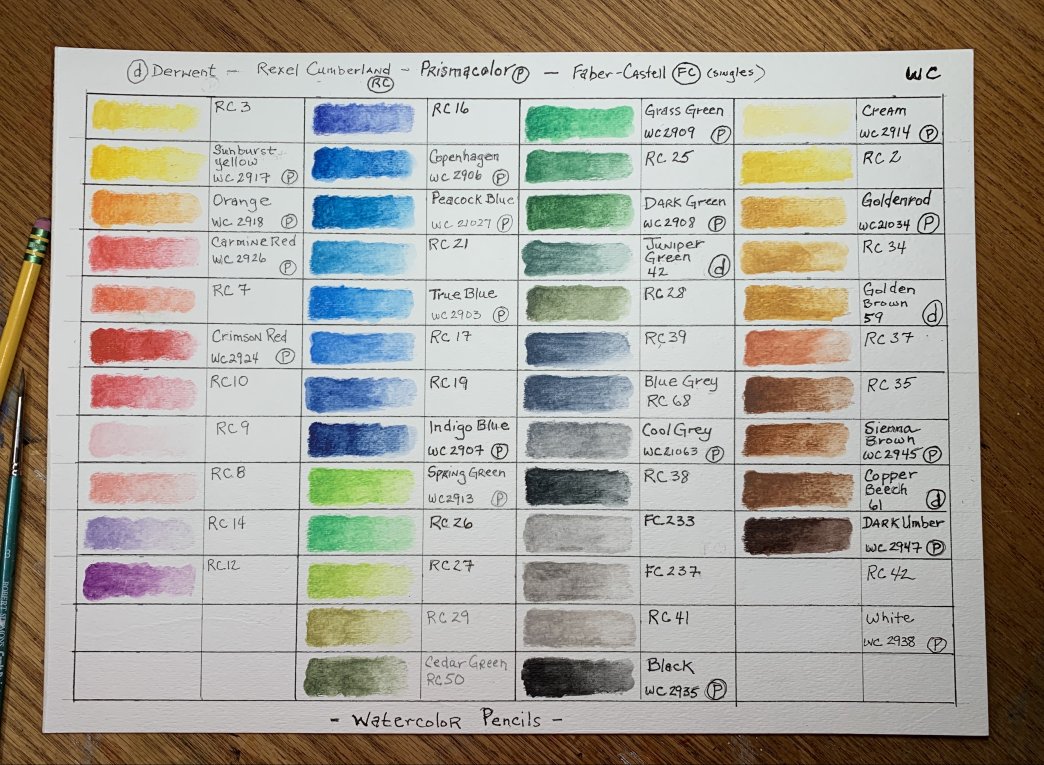 (d) Derwent - Rexel Cumberland (RC) - Prismacolor (P) - Faber-Castell (FC) (singles)
WC
RC 3
Sunburst
yellow
WC 2917 (P)
Orange
WC 2918 (P)
Carmine Red
WC 2926
(P)
RC 7
Crimson Red
WC2924 (P)
RC10
RC 9
RC 8
RC 14
RC12
RC 16
Copenhagen
WC 2906 (P)
Peacock Blue
WC 21027 (P)
RC 21
True Blue
WC 2903 (P)
RC 17
RC 19
Indigo Blue
WC 2907 (P)
Spring Green
WC2913 (P)
RC 26
RC 27
RC 29
Cedar Green
RC 50
Grass Green
WC 2909 (P)
RC 25
DARK Green
WC 2908 (P)
Juniper
Green
42 (d)
RC 28
RC 39
Blue Grey
RC 68
Cool Grey
WC 21063 (P)
RC 38
FC233
FC 237
RC 41
Black
WC 2935 (P)
Cream
WC 2914 (P)
RC 2
Goldenrod
WC21034 (P)
RC 34
Golden
Brown
59 (d)
RC 37
RC 35
Sienna
Brown
WC 2945 (P)
Copper
Beech
61 (d)
DARK Umber
WC 2947 (P)
RC 42
White
WC 2938 (P)
- Watercolor Pencils -